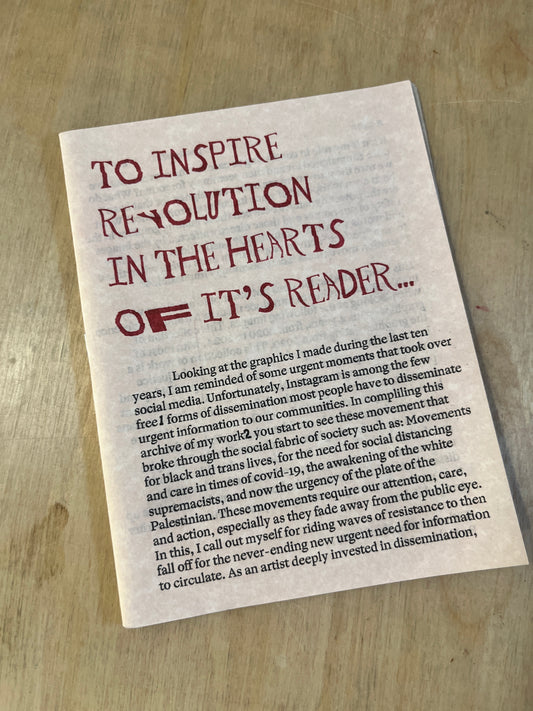 TO INSPIRE
REVOLUTION
IN THE HEARTS
OF IT'S READER...
Looking at the graphics I made during the last ten
years, I am reminded of some urgent moments that took over
social media. Unfortunately, Instagram is among the few
free1 forms of dissemination most people have to disseminate
urgent information to our communities. In compliling this
archive of my work2 you start to see these movement that
broke through the social fabric of society such as: Movements
for black and trans lives, for the need for social distancing
and care in times of covid-19, the awakening of the white
supremacists, and now the urgency of the plate of the
Palestinian. These movements require our attention, care,
and action, especially as they fade away from the public eye.
In this, I call out myself for riding waves of resistance to then
fall off for the never-ending new urgent need for information
to circulate. As an artist deeply invested in dissemination,